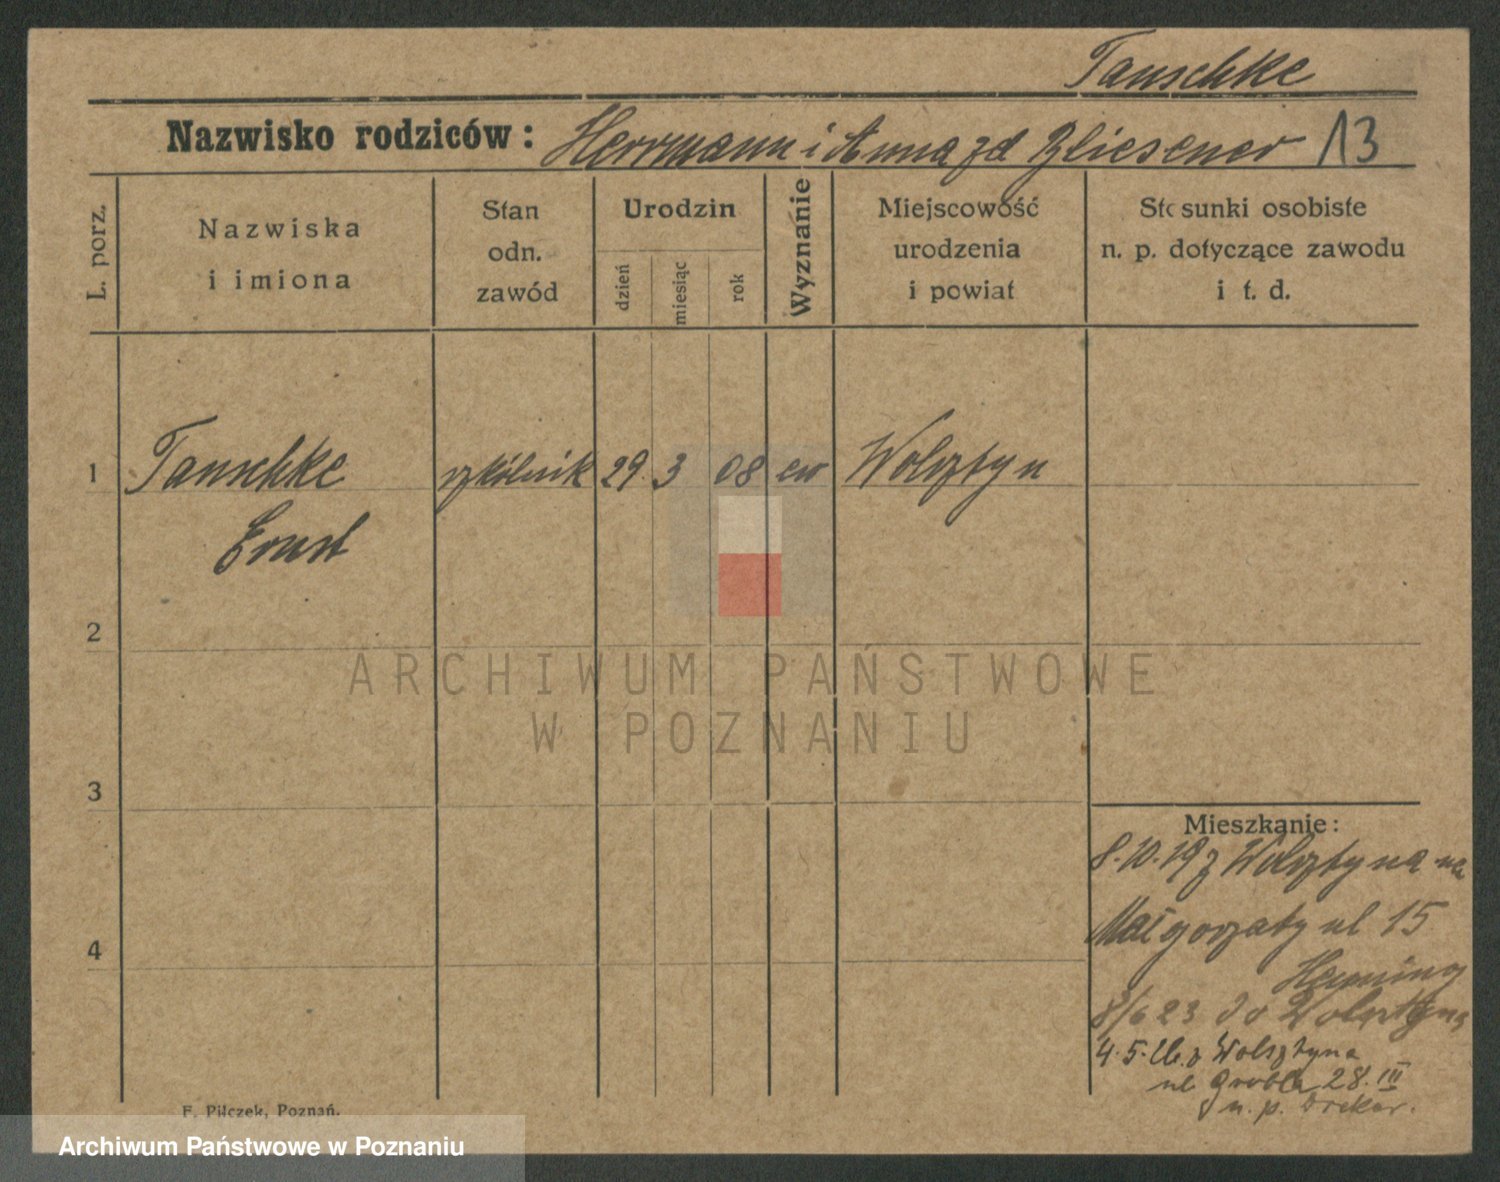 Tauschke
Nazwisko rodziców: Herrmann i Anna zd Bliesener 13
L. porz.
Nazwiska i imiona
Stan odn. zawód
Urodzin
dzień
miesiąc
rok
Wyznanie
Miejscowość urodzenia i powiat
Stosunki osobiste n. p. dotyczące zawodu i t. d.
1 Tauschke szkólnik 29. 3 08 ew Wolsztyn
Ernst
2
3
4
Mieszkanie:
8.10.19 z Wolsztyna na
Małgorzaty ul 15
Henning
8/6 23 do Wolsztyna
4.5. z Wolsztyna
ul Grobla 28. III
u. p.
F. Pilczek, Poznań.
ARCHIWUM PAŃSTWOWE
W POZNANIU
Archiwum Państwowe w Poznaniu